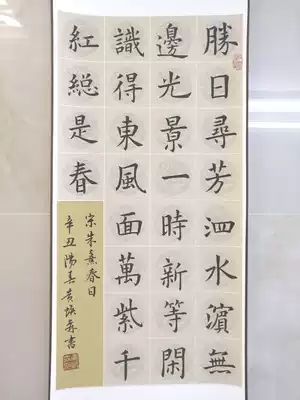 勝日尋芳泗水濵無
邊光景一時新等閑
識得東風面萬紫千
紅縂是春
宋朱熹春日
辛丑陽春黄焕森書